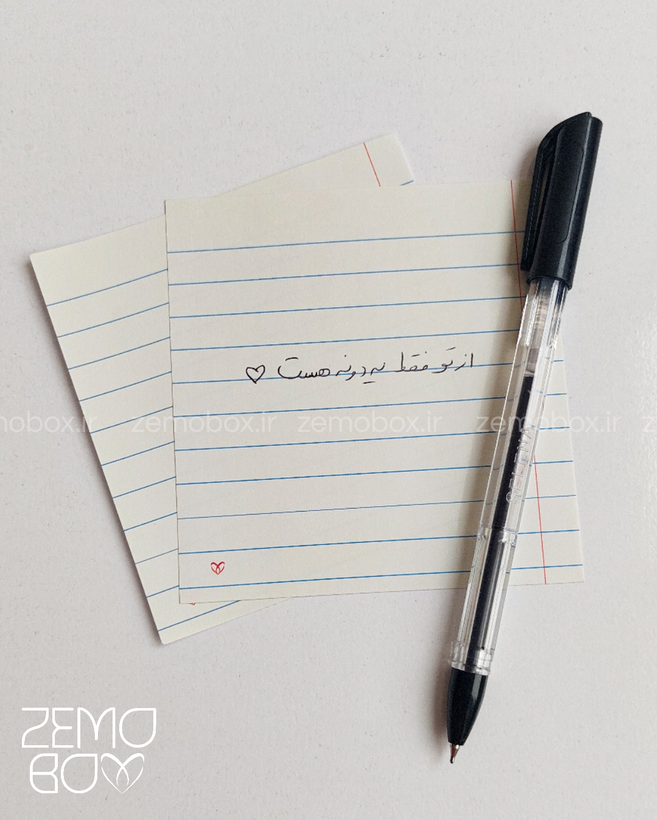 از تو فقط یه دونه هست ♡
zemobox.ir zemobox.ir zemobox.ir z
ZEMO
BOX